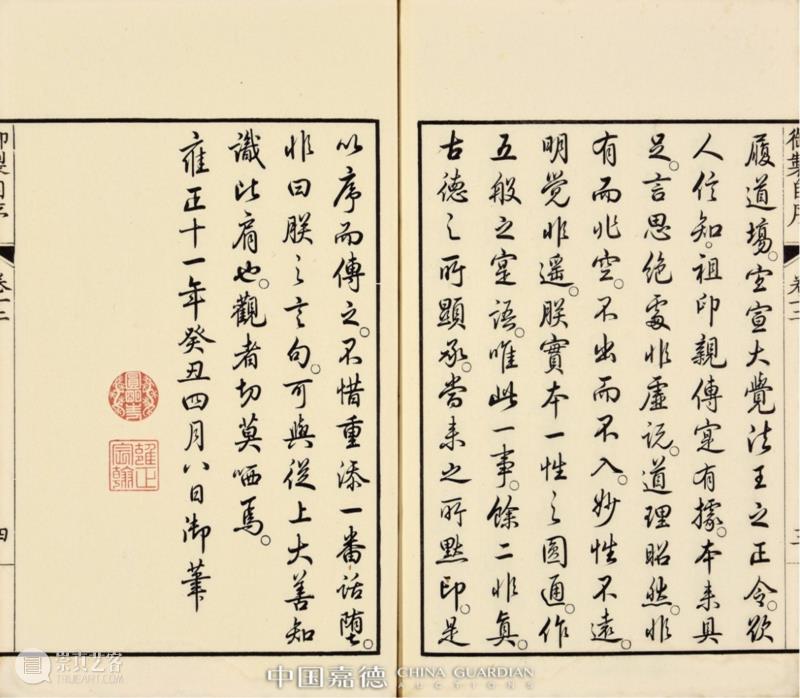 御製自序
卷十二
三
履道場。宣大覺法王之正令。欲
人信知。祖印親傳寔有據。本来具
足。言思絶處非虛説。道理昭然。非
有而非空。不出而不入。妙性不遠。
明覺非遥。朕實本一性之圓通。作
五般之寔語。唯此一事。餘二非真。
古德之所顯承。當来之所默印。是
以序而傳之。不惜重添一番話堕。
非曰朕之言句。可與從上大善知
識比肩也。觀者切莫哂焉。
雍正十一年癸丑四月八日御筆
雍正宸翰
御製自序
卷十二
四
崇真艺客
中国嘉德 CHINA GUARDIAN
AUCTIONS